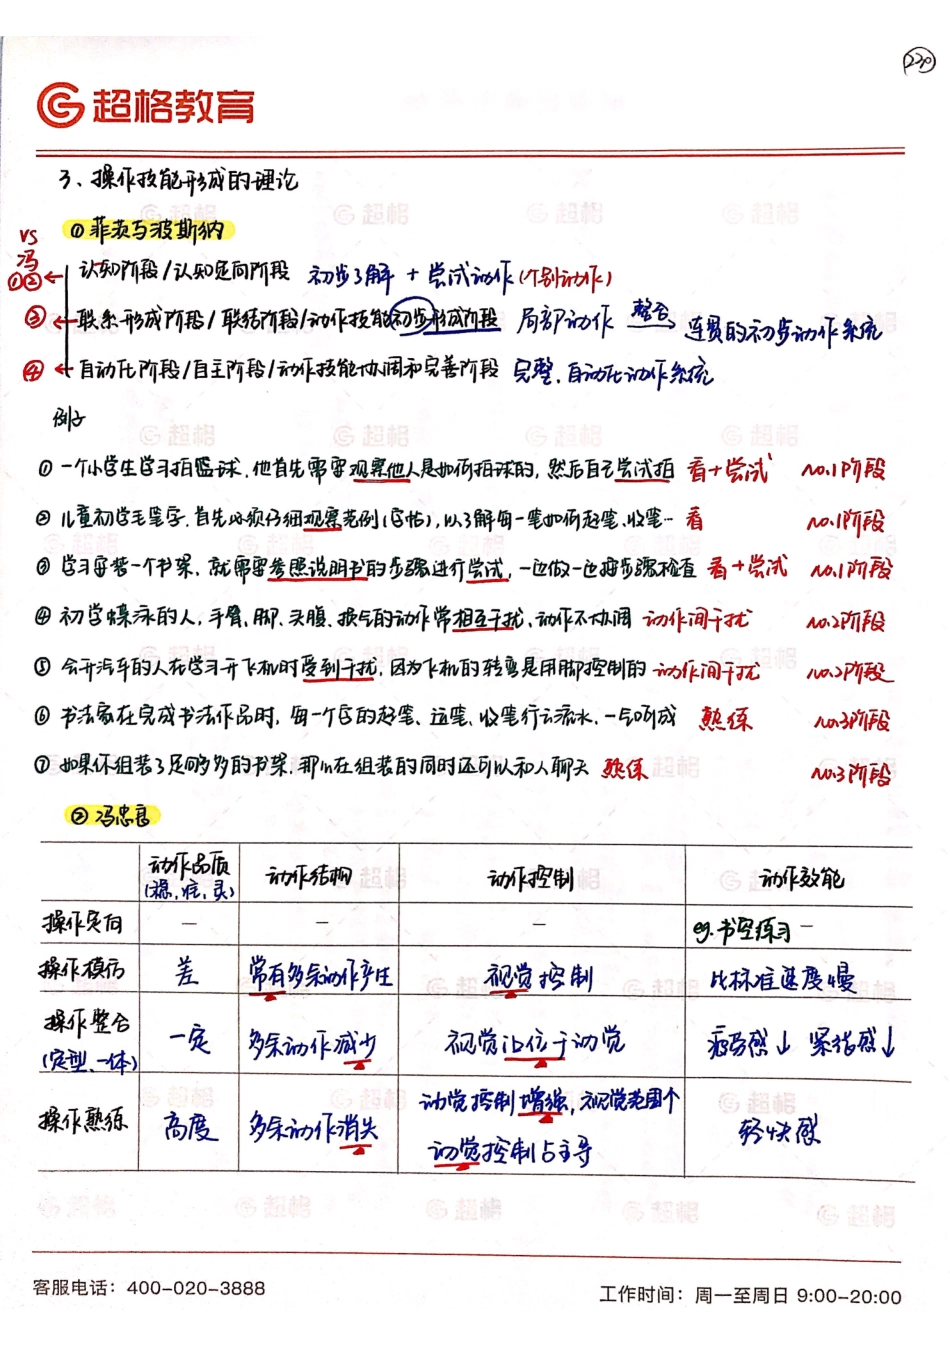 230
超格教育
3、操作技能形成的理论
①菲茨与波斯纳
VS
冯
①②← 认知阶段/认知定向阶段 初步了解 + 尝试动作(个别动作)
③← 联系形成阶段/联结阶段/动作技能初步形成阶段 局部动作 整合→ 连贯的初步动作系统
④← 自动化阶段/自主阶段/动作技能协调和完善阶段 完整、自动化动作系统
例子
① 一个小学生学习拍篮球,他首先需要观察他人是如何拍球的,然后自己尝试拍 看+尝试 No.1阶段
② 儿童初学毛笔字,首先必须仔细观察范例(字帖),以了解每一笔如何起笔、收笔… 看 No.1阶段
③ 学习安装一个书架,就需要参照说明书的步骤进行尝试,一边做一边再步骤检查 看+尝试 No.1阶段
④ 初学蝶泳的人,手臂、脚、头腹、换气的动作常相互干扰、动作不协调 动作间干扰 No.2阶段
⑤ 会开汽车的人在学习开飞机时受到干扰,因为飞机的转弯是用脚控制的 动作间干扰 No.2阶段
⑥ 书法家在完成书法作品时,每一个字的起笔、运笔、收笔行云流水,一气呵成 熟练 No.3阶段
⑦ 如果你组装了足够多的书架,那么在组装的同时还可以和人聊天 熟练 No.3阶段
②冯忠良
动作品质(稳、准、灵) 动作结构 动作控制 动作效能
操作定向 — — — eg.书空练习 —
操作模仿 差 常有多余动作产生 视觉控制 比标准速度慢
操作整合(定型、一体) 一定 多余动作减少 视觉让位于动觉 疲劳感↓ 紧张感↓
操作熟练 高度 多余动作消失 动觉控制增强,视觉范围个 轻快感
动觉控制占主导
客服电话:400-020-3888
工作时间:周一至周日 9:00-20:00